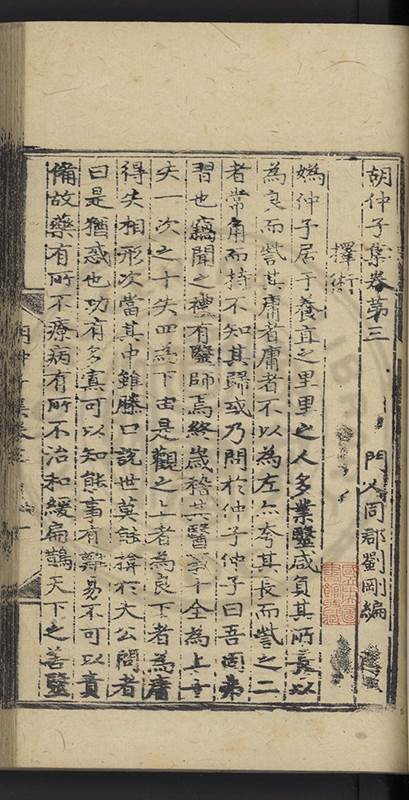 胡仲子集卷第三
門人同郡劉剛編
擇術
嬀仲子居于養直之里里之人多業醫咸負其所長以
為良而訾其庸者庸者不以為左亦夸其長而訾之二
者常角而持不知其歸或乃問於仲子仲子曰吾固弗
習也竊聞之禮有醫師焉終歲稽其醫事十全為上十
失一次之十失四為下由是觀之上者為良下者為庸
得失相形次當其中雖滕口說世莫能揜於大公問者
曰是猶惑也功有多真可以知能事有難易不可以責
備故藥有所不療病有所不治和緩扁鵲天下之善醫
胡仲子集卷三 一